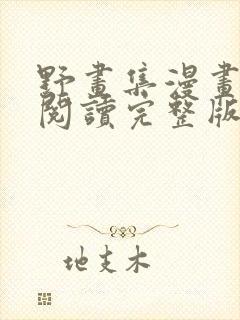 野畫集漫畫
閱讀完整版
地支木